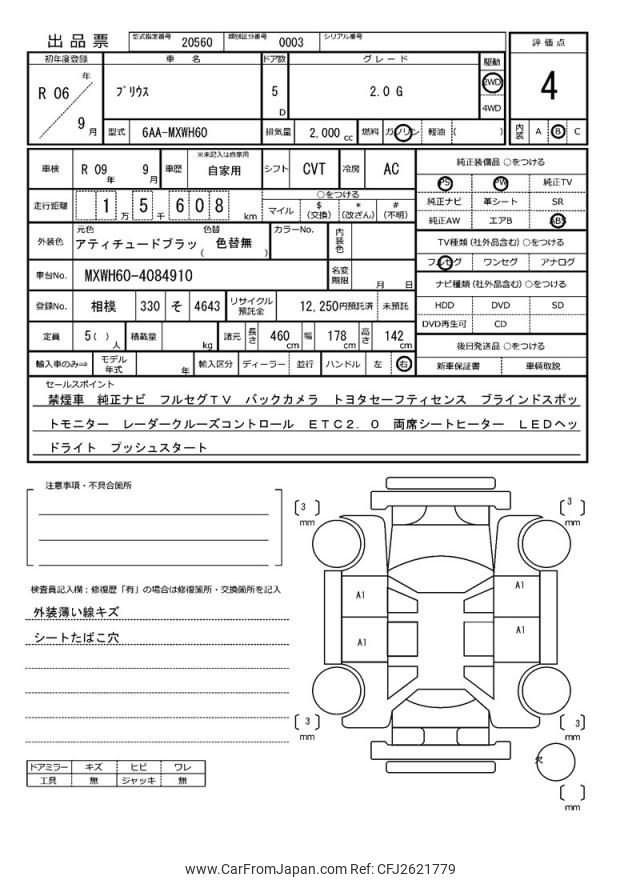 出品票
型式指定番号 20560 類別区分番号 0003 シリアル番号
評価点
4
内装 A B C
初年度登録 車名 ドア数 グレード 駆動
R 06 年 9 月
プリウス 5 D 2.0 G 2WD 4WD
型式 6AA-MXWH60 排気量 2,000 cc 燃料 ガソリン 軽油 ( )
車検 R 09 年 9 月 車歴 ※未記入は自家用 自家用 シフト CVT 冷房 AC
純正装備品 ○をつける
PS PW 純正TV
純正ナビ 革シート SR
純正AW エアB ABS
走行距離 1 万 5 千 6 0 8 km
○をつける
マイル $ (交換) * (改ざん) # (不明)
外装色 元色 アティチュードブラッ 色替 ( 色替無 ) カラーNo. 内装色
TV種類 (社外品含む) ○をつける
フルセグ ワンセグ アナログ
車台No. MXWH60-4084910 名変期限 月 日
ナビ種類 (社外品含む) ○をつける
HDD DVD SD
DVD再生可 CD
登録No. 相模 330 そ 4643 リサイクル預託金 12,250円預託済 未預託
定員 5( ) 人 積載量 kg 諸元 長さ 460 cm 幅 178 cm 高さ 142 cm
後日発送品 ○をつける
新車保証書 車輌取説
輸入車のみ⇒ モデル年式 年 輸入区分 ディーラー 並行 ハンドル 左 右
セールスポイント
禁煙車 純正ナビ フルセグTV バックカメラ トヨタセーフティセンス ブラインドスポッ
トモニター レーダークルーズコントロール ETC2.0 両席シートヒーター LEDヘッ
ドライト プッシュスタート
注意事項・不具合箇所
検査員記入欄:修復歴「有」の場合は修復箇所・交換箇所を記入
外装薄い線キズ
シートたばこ穴
ドアミラー キズ ヒビ ワレ
工具 無 ジャッキ 無
[3] mm
[3] mm
A1
A1
A1
A1
[3] mm
[3] mm
欠
[ ] mm
www.CarFromJapan.com Ref: CFJ2621779